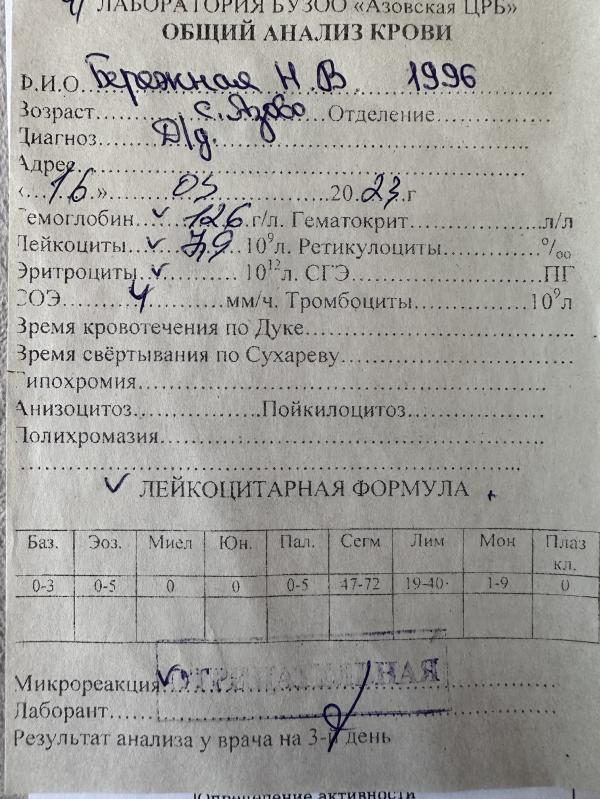 ЛАБОРАТОРИЯ БУЗОО «Азовская ЦРБ»
ОБЩИЙ АНАЛИЗ КРОВИ
Ф.И.О. Бережная Н В 1996
Возраст с. Азово Отделение
Диагноз Д/д.
Адрес
«16.» 03 2023 г
Гемоглобин ✓ 126 г/л. Гематокрит л/л
Лейкоциты ✓ 7,9 10⁹л. Ретикулоциты ⁰/₀₀
Эритроциты ✓ 10¹²л. СГЭ ПГ
СОЭ 4 мм/ч. Тромбоциты 10⁹л
Время кровотечения по Дуке
Время свёртывания по Сухареву
Гипохромия
Анизоцитоз Пойкилоцитоз
Полихромазия
✓ ЛЕЙКОЦИТАРНАЯ ФОРМУЛА
Баз. Эоз. Миел Юн. Пал. Сегм Лим Мон Плаз кл.
0-3 0-5 0 0 0-5 47-72 19-40 1-9 0
Микрореакция ✓
Лаборант
Результат анализа у врача на 3-й день
Определение активности